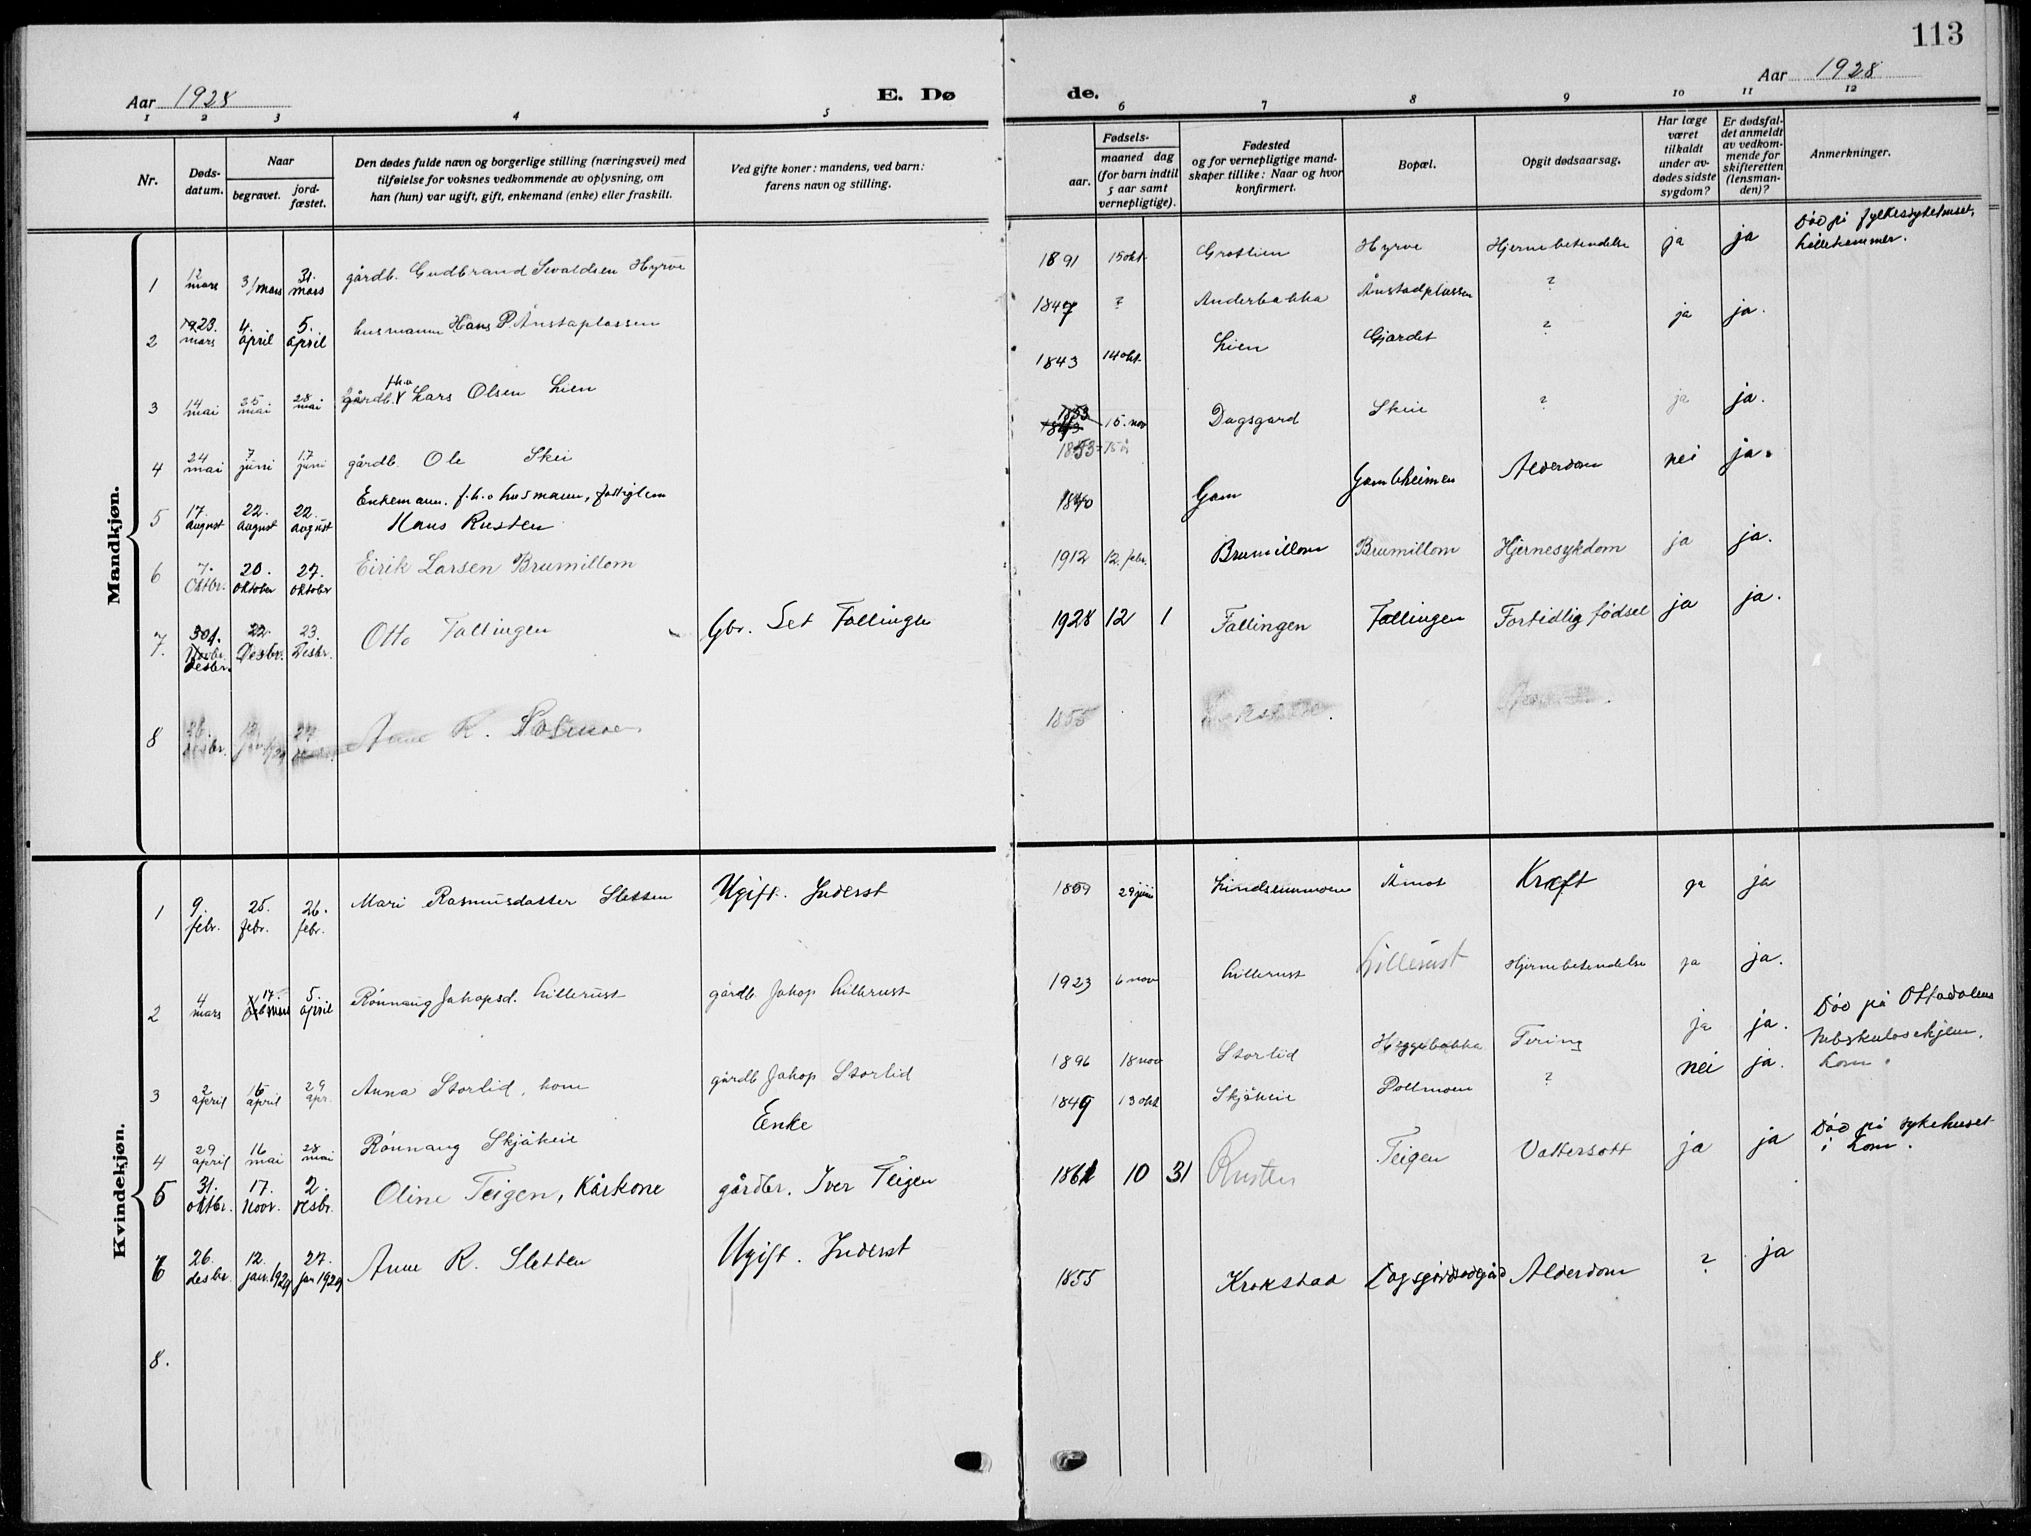 113
Aar 1928
E. Dø
de.
Aar 1928
1 2 3 4 5 6 7 8 9 10 11 12
Nr.
Døds-
datum.
Naar
begravet.
jord-
fæstet.
Den dødes fulde navn og borgerlige stilling (næringsvei) med
tilføielse for voksnes vedkommende av oplysning, om
han (hun) var ugift, gift, enkemand (enke) eller fraskilt.
Ved gifte koner: mandens, ved barn:
farens navn og stilling.
Fødsels-
aar.
maaned dag
(for barn indtil
5 aar samt
vernepligtige).
Fødested
og for vernepligtige mand-
skaper tillike: Naar og hvor
konfirmert.
Bopæl.
Opgit dødsaarsag.
Har læge
været
tilkaldt
under av-
dødes sidste
sygdom?
Er dødsfal-
det anmeldt
av vedkom-
mende for
skifteretten
(lensman-
den)?
Anmerkninger.
Mandkjøn.
1 12 mars 31 mars 31. mars gårdb. Gudbrand Sivaldsen Hyrve 1891 15 okt. Grotlien Hyrve Hjernebetendelse ja ja Död på fylkessykehuset, Lillehammer.
2 23. mars 4. april 5. april husmann Hans P. Ånstaplassen 1847 ? Anderbakka Ånstadplassen ? ja ja.
3 14 mai 25 mai 28 mai gårdb. f.h.v. Lars Olsen Lien 1843 14 okt. Lien Gjardet ? ja ja.
4 24 mai 7 juni 17 juni gårdb. Ole Skei 1853 15. nov Dagsgard Skei ? nei ja.
5 17. august 22. august 22. august Enkemann. f.h.v. husmann, fattiglem
Hans Rusten 1840 Gam Gamleheimen Alderdom
6 7. Oktbr. 20. oktober 27. oktober Eirik Larsen Brumillom 1912 12. febr. Brumillom Brumillom Hjernesykdom ja ja.
7. 1. desbr. 22. Desbr. 23. Desbr. Otto Fallingen Gbr. Set Fallingen 1928 12 1 Fallingen Fallingen Fortidlig födsel ja ja.
8 26. desbr. 12. jan. /29 27. Anne R. 1855
Kvindekjøn.
1 9. febr. 25. febr. 26. febr. Mari Rasmusdatter Sletten Ugift. Inderst 1859 29 juni Lindsemmoen Åmot Kræft ja ja
2 4 mars 17. mars 5. april Rönnaug Jakopsd. Lillerust gårdb. Jakop Lillerust 1923 6 nov Lillerust Lillerust Hjernebetendelse ja ja.
3 2 april 16 april 29 apr. Anna Storlid, kone gårdb. Jakop Storlid 1896 18 nov Storlid Heggebakka Tering ja ja. Död på Ottadalens tuberkulosehjem. Lom.
4 29 april 16 mai 28 mai Rönnaug Skjåkeie Enke 1849 13 okt Skjåkeie Pollmoen ? nei ja.
5 31. oktbr. 17. Novr. 2. desbr. Oline Teigen, Kårkone gårdbr. Iver Teigen 1861 10 31 Rusten Teigen Vattersott ja ja Död på sykehuset i Lom.
6 26. desbr. 12. jan. 1929 27. jan 1929 Anne R. Sletten Ugift. Inderst 1855 Krokstad Alderdom ? ja
8.